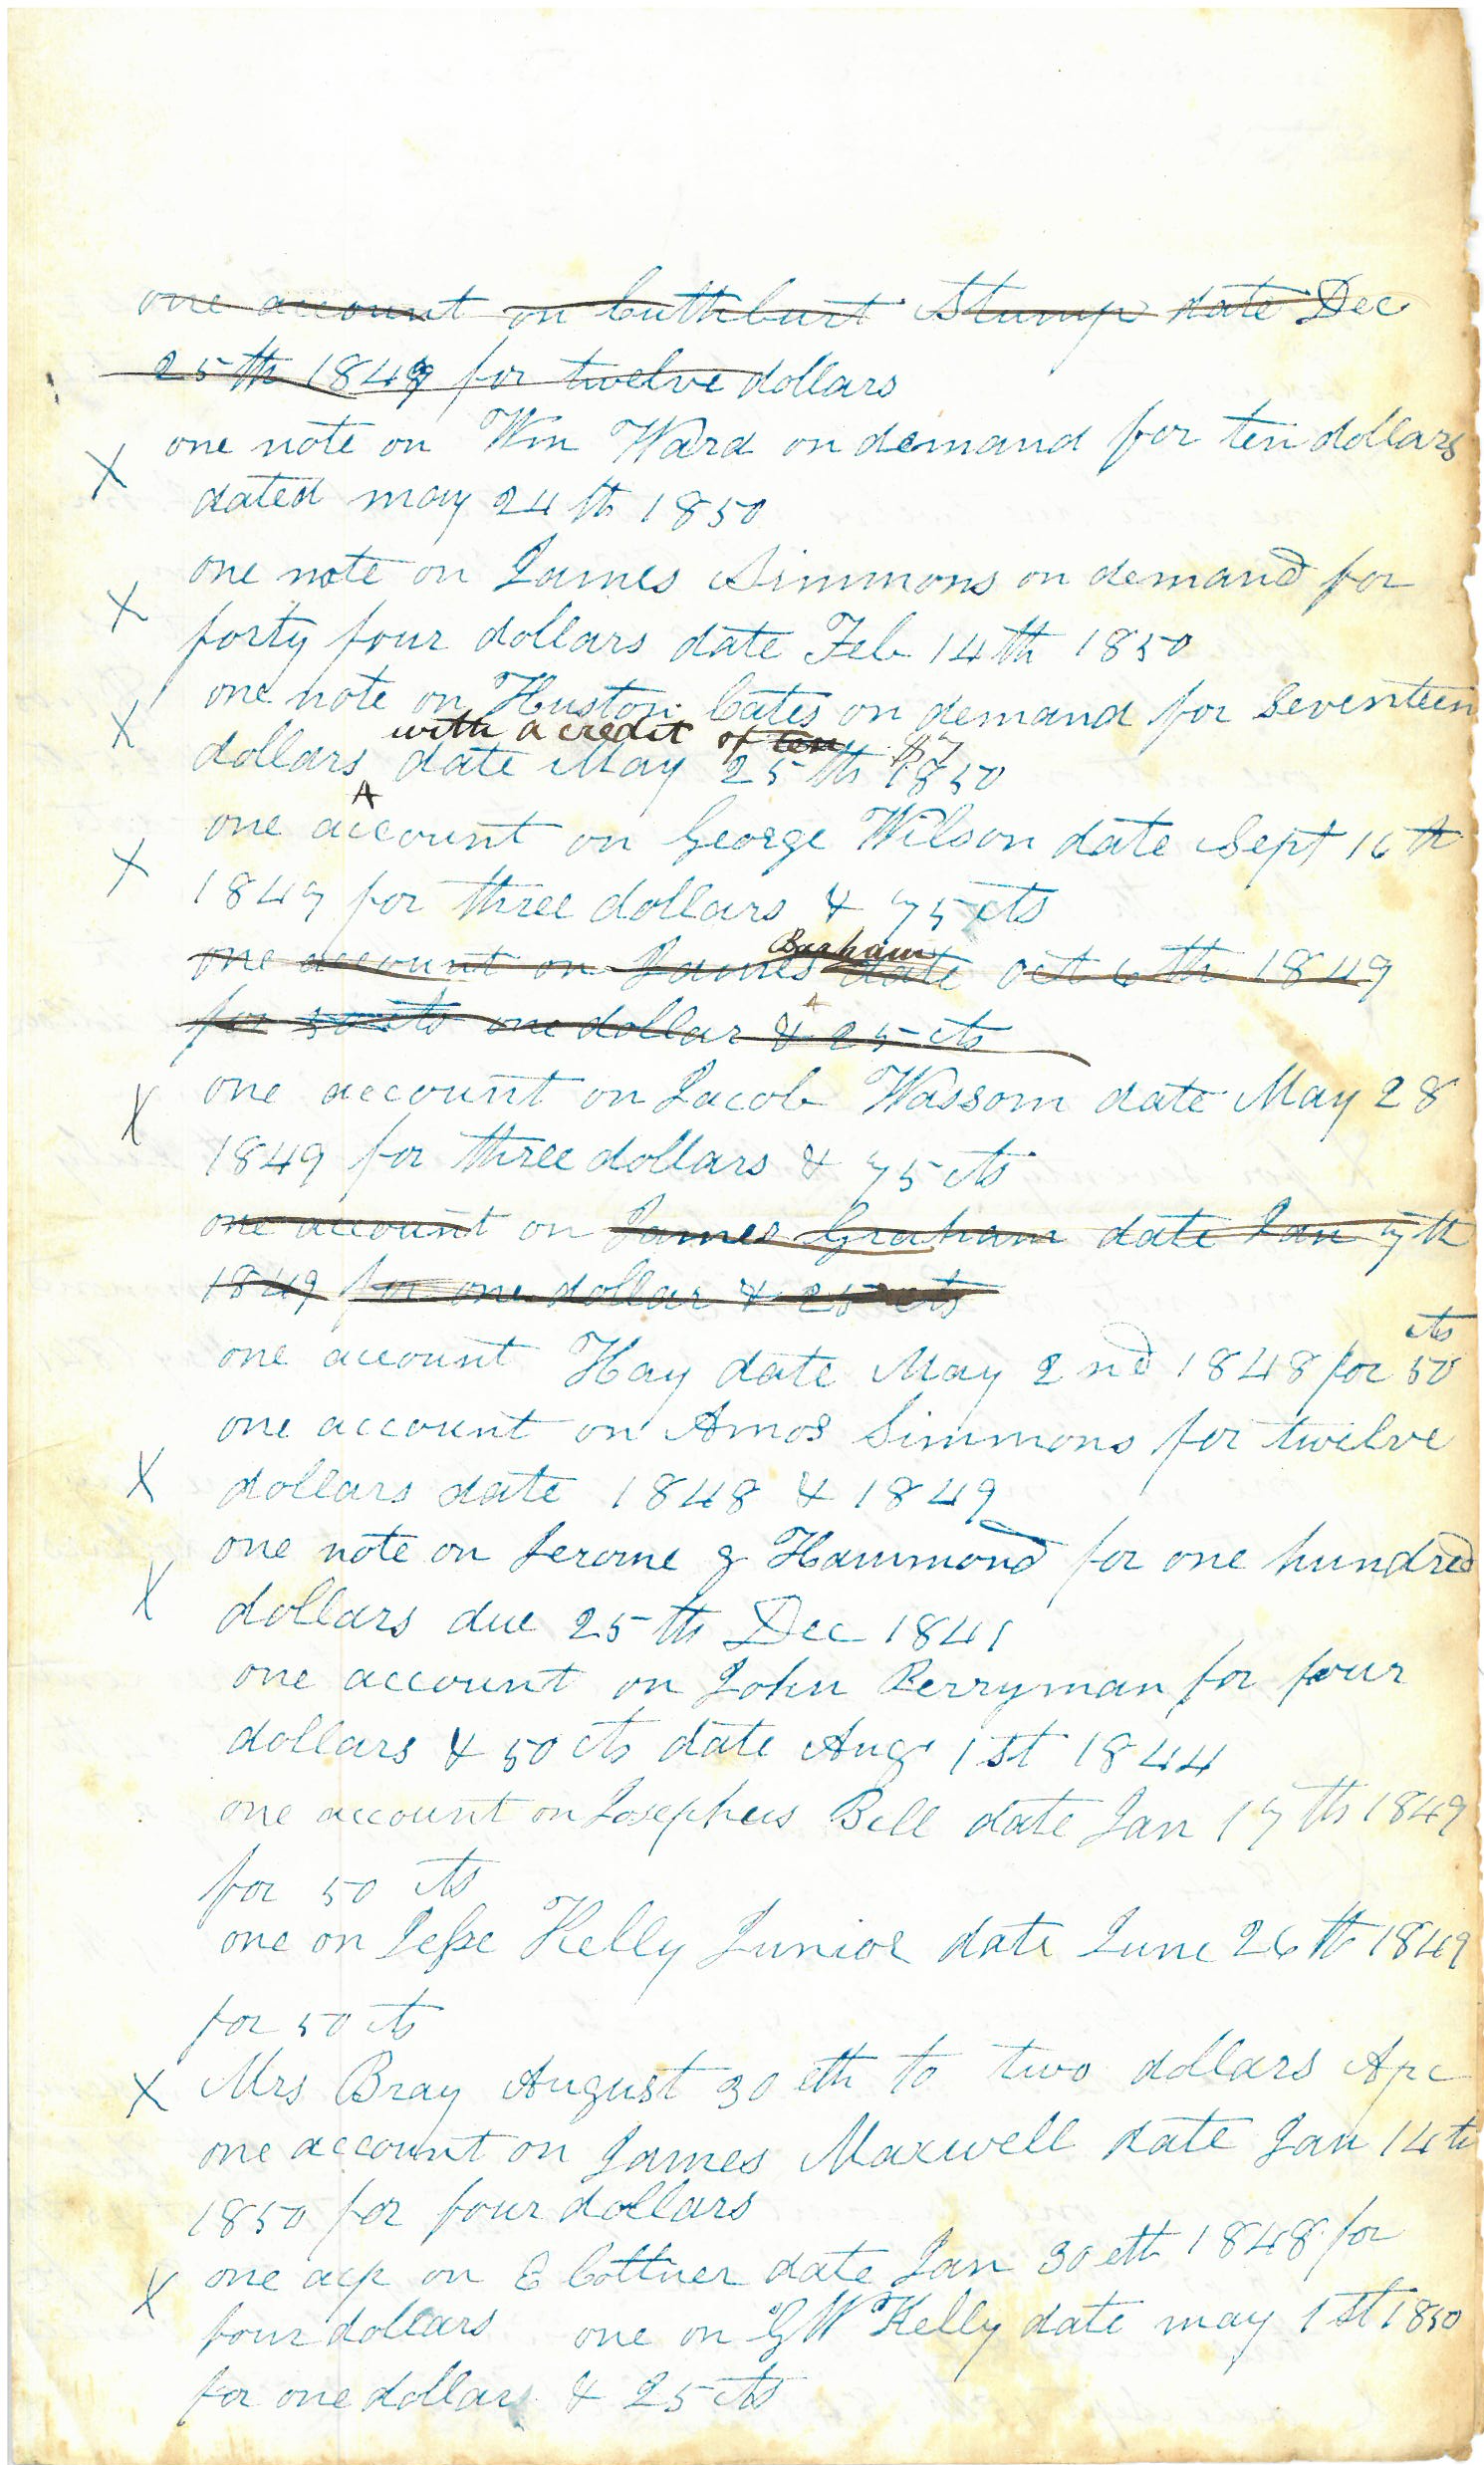 one account on Cuthburt Stump date Dec
25th 1849 for twelve dollars
one note on Wm Ward on demand for ten dollars
X dated may 24th 1850
one note on James Simmons on demand for
X forty four dollars date Feb 14th 1850
one note on Huston Cates on demand for Seventeen
with a credit of ten $7
X dollars date May 25th 1850
one account on George Wilson date Sept 16th
X 1849 for three dollars & 75 cts
Barham
one account on James date oct 6th 1849
for 50 cts one dollar & 25 cts
X one account on Jacob Wassom date May 28
1849 for three dollars & 75 cts
one account on James Graham date Jan 7th
1849 for one dollar & 25 cts
cts
one account Hay date May 2nd 1848 for 50
one account on Amos Simmons for twelve
X dollars date 1848 & 1849
one note on Jerome g Hammond for one hundred
X dollars due 25th Dec 1841
one account on John Berryman for four
dollars & 50 cts date Aug 1st 1844
one account on Josephus Bell date Jan 17th 1849
for 50 cts
one on Jesse Kelly Junior date June 26th 1849
for 50 cts
X Mrs Bray August 30eth to two dollars
one account on James Maxwell date Jan 14th
1850 for four dollars
X one on E Cottner date Jan 30eth 1848 for
four dollars one on G W Kelly date may 1st 1850
for one dollar & 25 cts